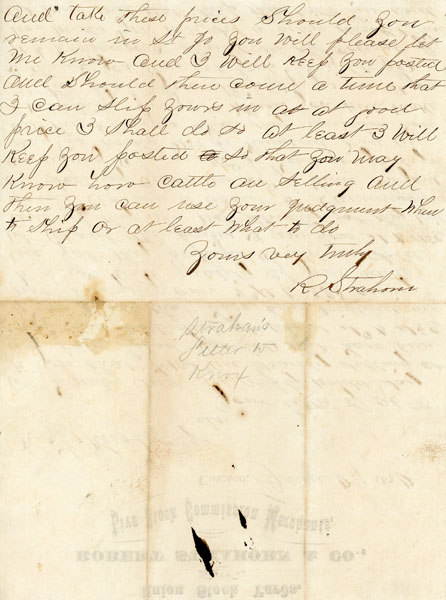 and take these prices Should you
remain in St Jo you will please let
me Know and I will Keep you posted
and Should there come a time that
I can Slip yours in at a good
price I Shall do so at least I will
Keep you posted so that you may
Know how cattle are Selling and
then you can use your judgment when
to Ship or at least what to do
Yours very truly
R Strahorn
Strahan's
Letter to
Knox
Chicago,
Live Stock Commission Merchants,
ROBERT STRAHORN & CO.,
Union Stock Yards,